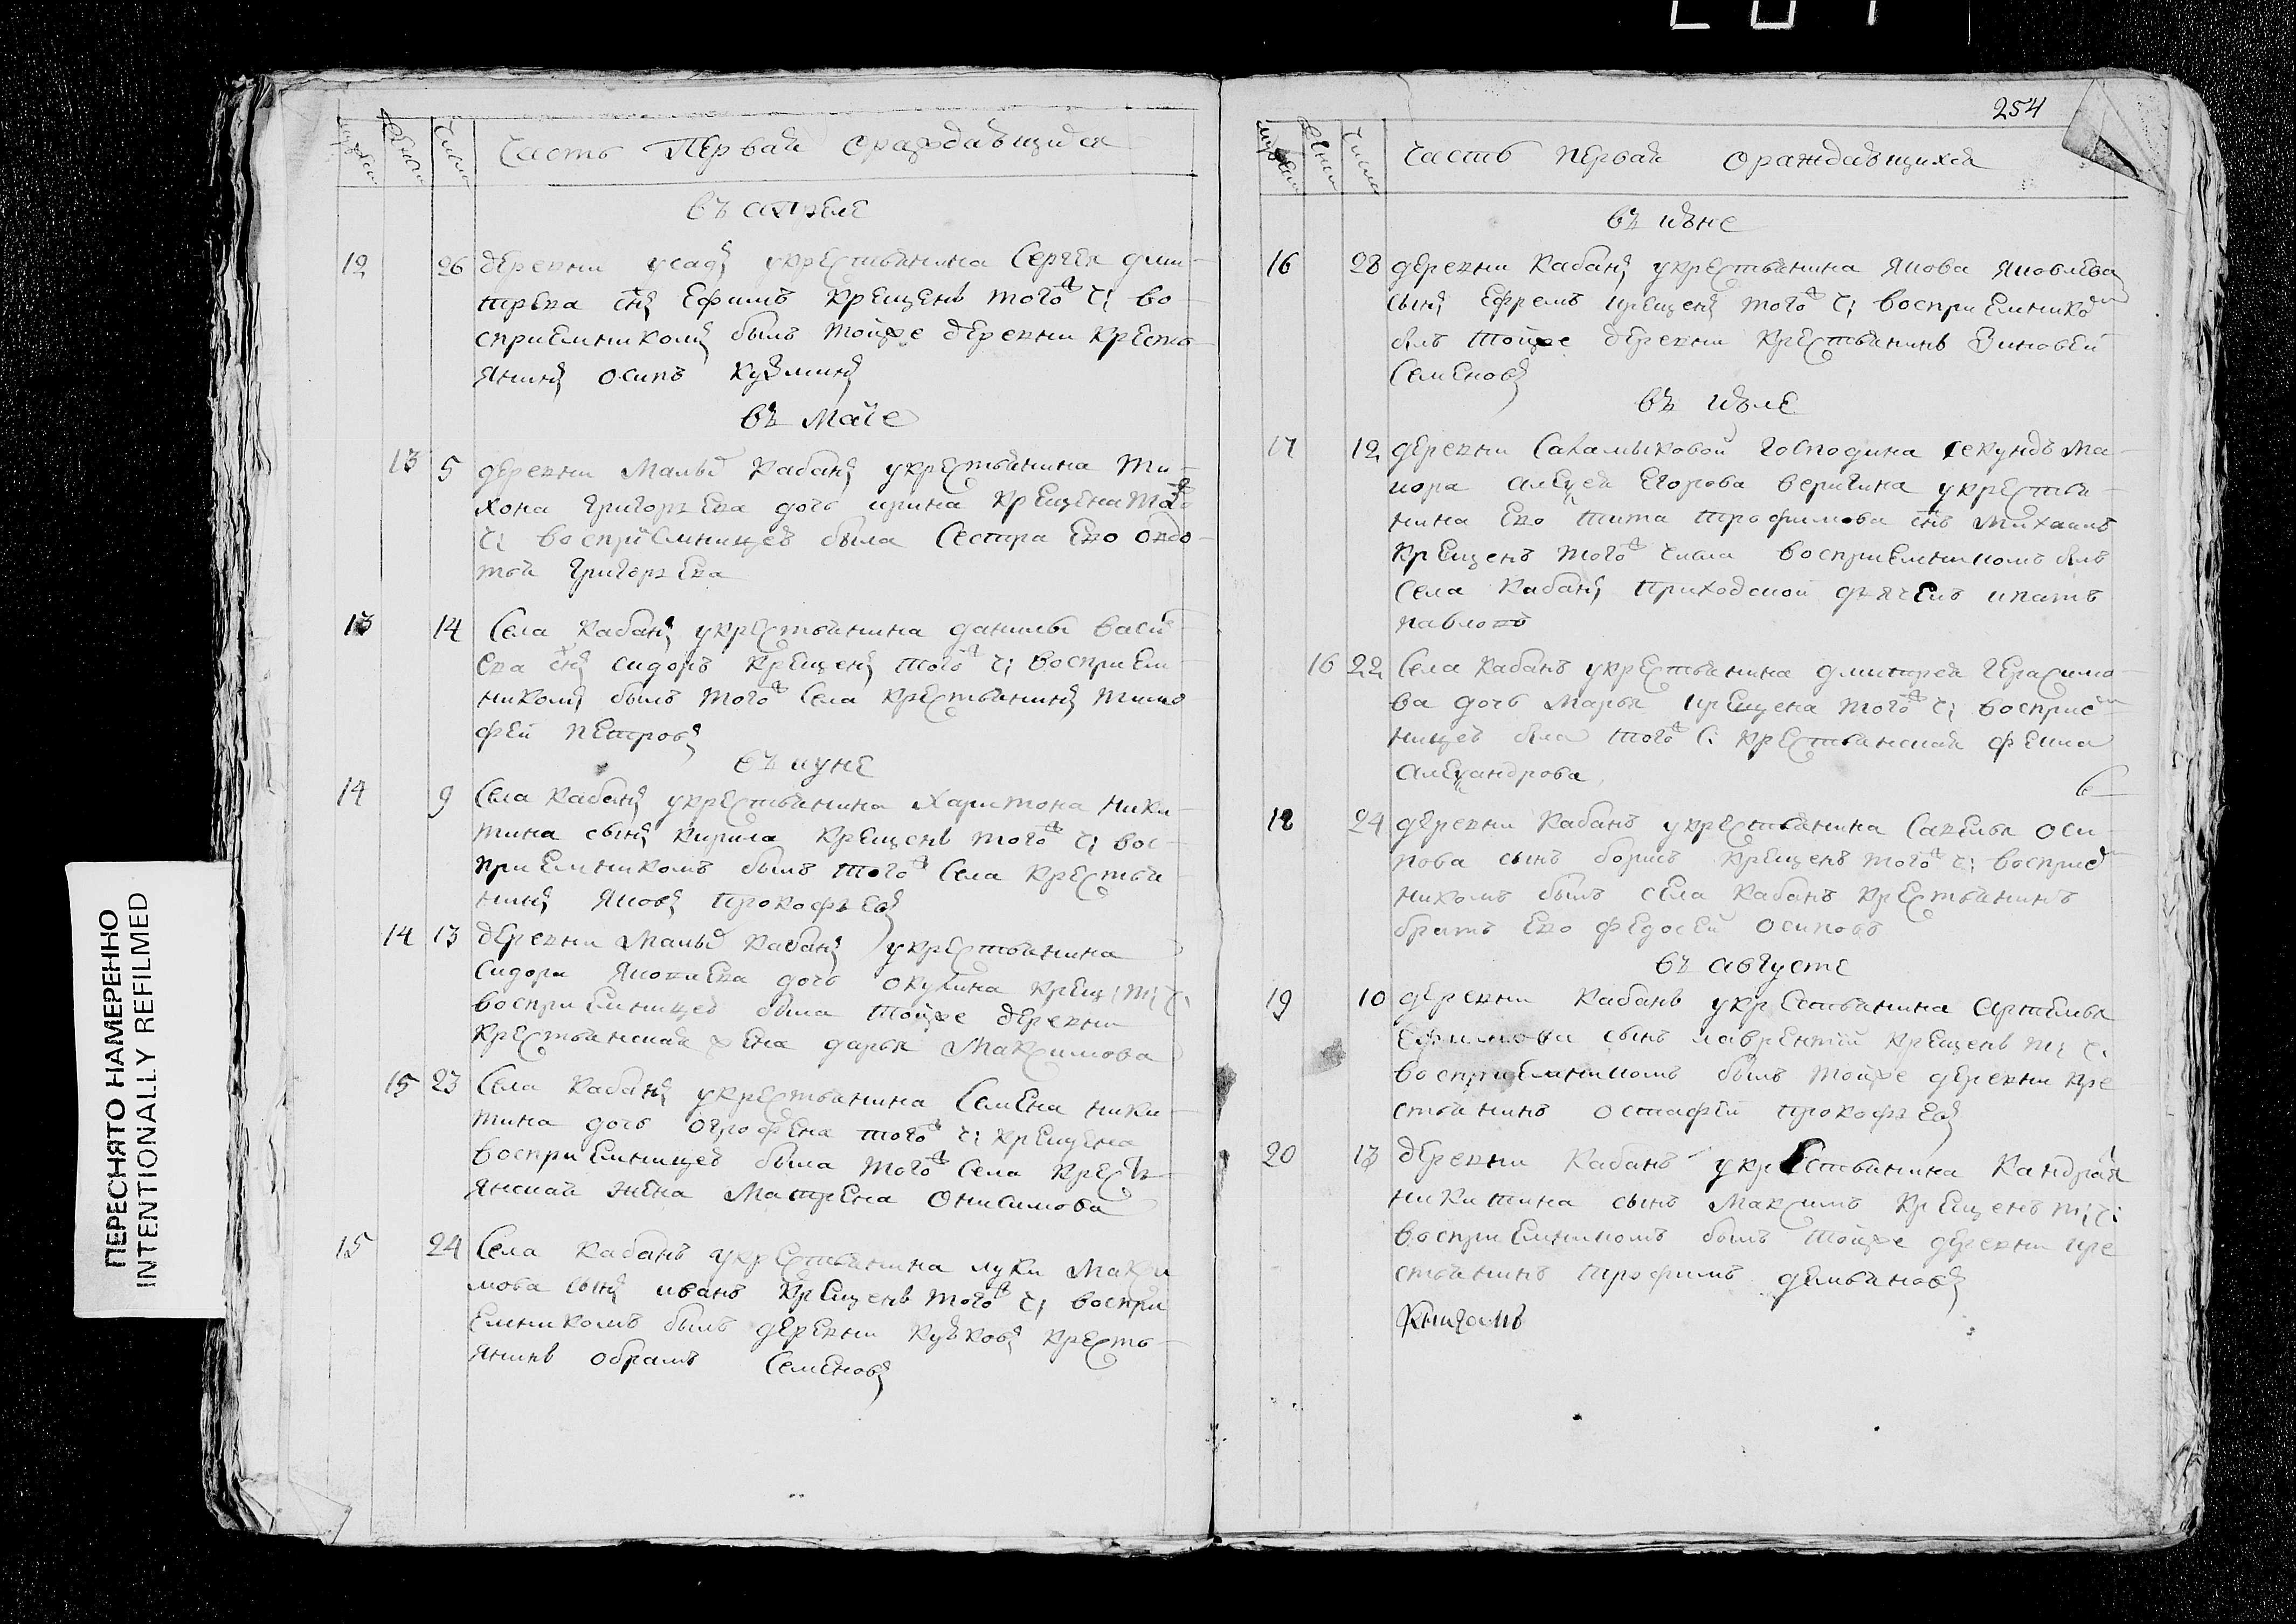 254
Часть Первая ораждавщихся
въ апреле
12 26 деревни усадъ укрестьянина Сергея дми-
треева снъ Ефимъ крещенъ тогож ч: во-
сприемникомъ былъ тойже деревни кресть
янинъ осипъ кузминъ
въ маiе
13 5 деревни Малы Кабанъ укрестьянина Ти-
хона григорьева дочь ирина крещена тогож
ч: восприемницей была Сестра ево овдо-
тья григорьева
13 14 Села Кабанъ укрестьянина данилы васи
ева снъ сидоръ крещенъ тогож ч: восприем-
никомъ былъ тогож Села крестьянинъ тимо
фей петровъ
въ иуне
14 9 Села Кабанъ укрестьянина Харитона ники-
тина сынъ кирила крещенъ тогож ч: вос-
приемникомъ былъ тогож Села крестья
нинъ яковъ прокофьевъ
14 13 деревни Малы Кабанъ укрестьянина
сидора яковлева дочь окулина крещ: т: ч:
восприемницей была тойже деревни
крестьянская жена дарья Максимова
15 23 Села Кабанъ укрестьянина Семена ники-
тина дочь огрофена тогож ч: крещена
восприемницей была тогож Села кресть-
янская жена Матрена онисимова
15 24 Села Кабанъ укрестьянина луки Макси
мова сынъ иванъ крещенъ тогож ч: воспри
емникомъ былъ деревни кресть-
янинъ обрамъ Семеновъ
Часть первая ораждавщихся
въ июне
16 28 деревни Кабанъ укрестьянина якова яковлева
сынъ Ефремъ крещенъ тогож ч: восприемнико
былъ тойже деревни крестьянинъ Зиновей
Семеновъ
въ июле
17 12 деревни господина секундъ ма-
иора алексея Егорова веригина укрестья-
нина ево тита трофимова снъ Михаилъ
крещенъ тогож числа восприемникомъ былъ
села Кабанъ приходской дьячекъ ипатъ
павловъ
16 22 Села Кабанъ укрестьянина дмитрея герасимо-
ва дочь марья крещена тогож ч: восприем
ницей была тогож с: крестьянская фекла
александрова
18 24 деревни Кабанъ укрестьянина Савелья оси-
пова сынъ борисъ крещенъ тогож ч: восприем
никомъ былъ села Кабанъ крестьянинъ
братъ ево федосей осиповъ
въ августе
19 10 деревни Кабанъ укрестьянина артемья
Ефимова сынъ лаврентiй крещенъ т: ч:
восприемникомъ былъ тойже деревни кре
стьянинъ остафей прокофьевъ
20 13 деревни Кабанъ укрестьянина Кандратя
никитина сынъ Максимъ крещенъ т: ч:
восприемникомъ былъ тойже деревни кре
стьянинъ трофимъ демьяновъ
ПЕРЕСНЯТО НАМЕРЕННО
INTENTIONALLY REFILMED